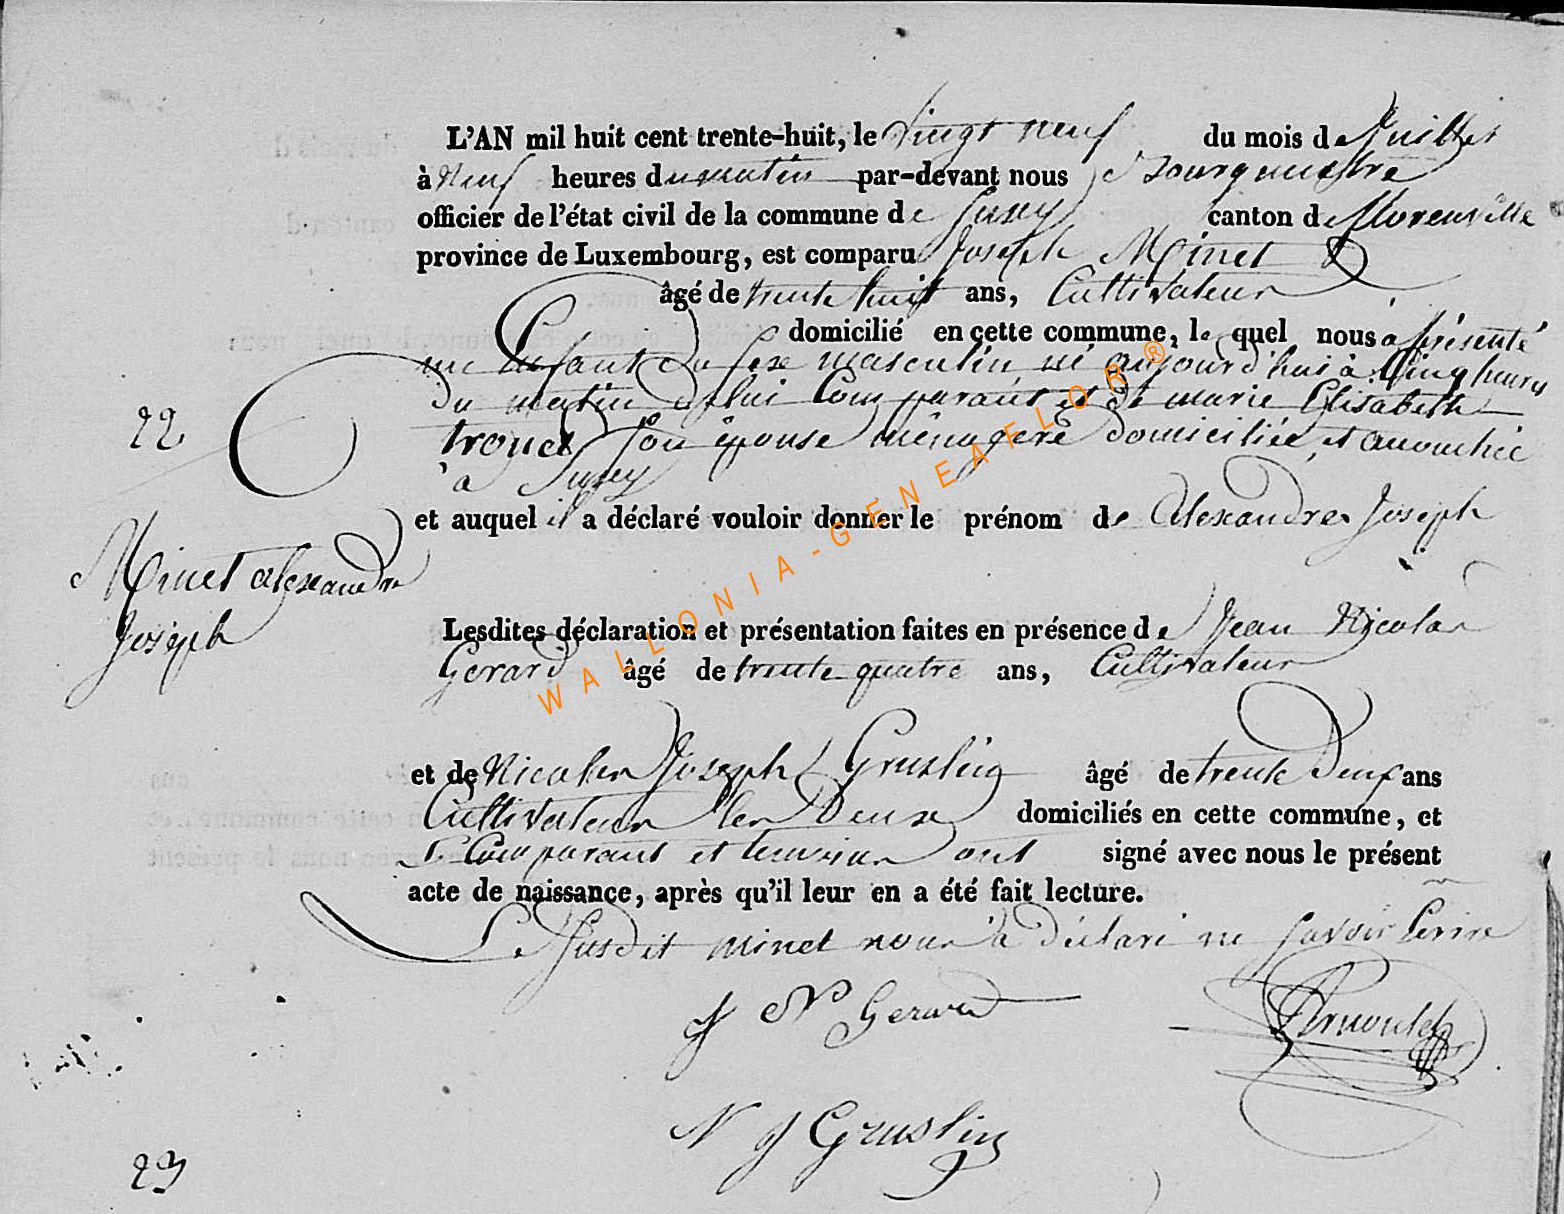 L'AN mil huit cent trente-huit, le vingt neuf du mois de Juillet
à neuf heures du matin par-devant nous Bourgumestre
officier de l'état civil de la commune de Suxy canton de florenville
province de Luxembourg, est comparu Joseph Minet
âgé de trente huit ans, Cultivateur
domicilié en cette commune, le quel nous a présenté
un Enfant du sexe masculin né aujourd'hui à Cinq heures
du matin de lui Comparant et de marie Elisabeth
22
trouet son épouse ménagere domiciliée et accouchée
à Suxy
et auquel il a déclaré vouloir donner le prénom de Alexandre Joseph
Minet alexandre
Joseph
Lesdites déclaration et présentation faites en présence de Jean Nicolas
Gerard âgé de trente quatre ans, Cultivateur
et de Nicolas Joseph Gruslin âgé de trente Deux ans
Cultivateur les Deux domiciliés en cette commune, et
Comparant et temoins ont signé avec nous le présent
acte de naissance, après qu'il leur en a été fait lecture.
Le susdit minet nous a déclaré ne savoir Ecrire
J N Gerard
Arnould
N J Gruslin
23
WALLONIA-GENEAFLOR ®